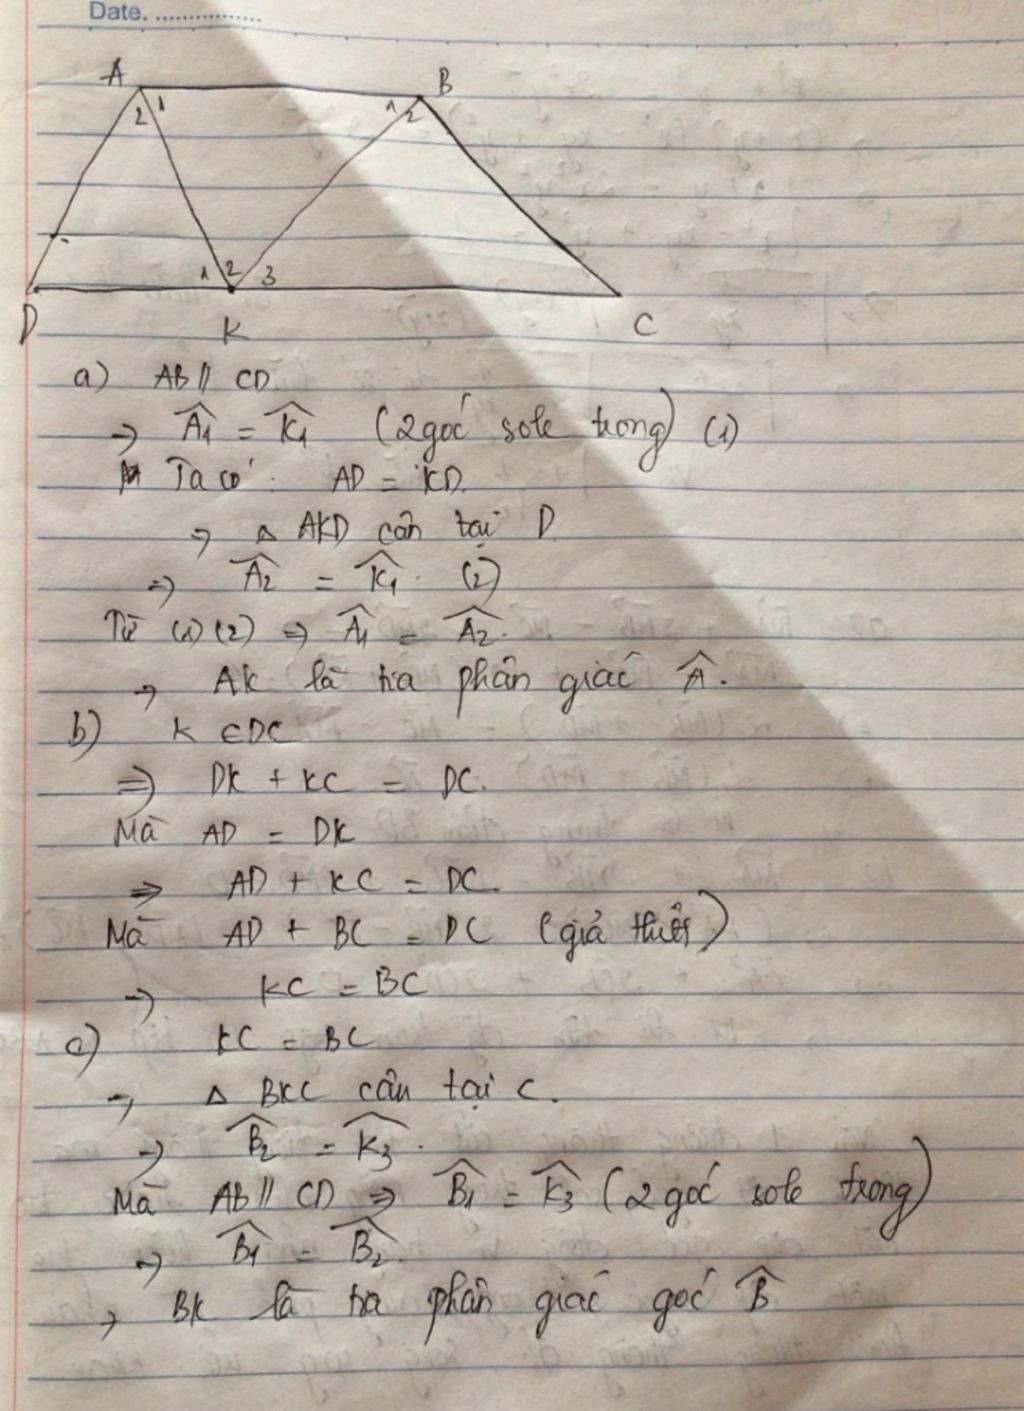 Date. ................
A
B
2 1
1 2
1 2 3
D
K
C
a) AB // CD.
→ Â1 = K̂1 (2 góc sole trong) (1)
Ta có: AD = KD.
⇒ △ AKD cân tại D
⇒ Â2 = K̂1. (2)
Từ (1) (2) ⇒ Â1 = Â2.
→ AK là tia phân giác Â.
b) K ∈ DC
⇒ DK + KC = DC.
Mà AD = DK
⇒ AD + KC = DC.
Mà AD + BC = DC (giả thiết)
→ KC = BC
c) KC = BC
→ △ BKC cân tại C.
→ B̂2 = K̂3.
Mà AB // CD ⇒ B̂1 = K̂3 (2 góc sole trong)
→ B̂1 = B̂2.
→ BK là tia phân giác góc B̂